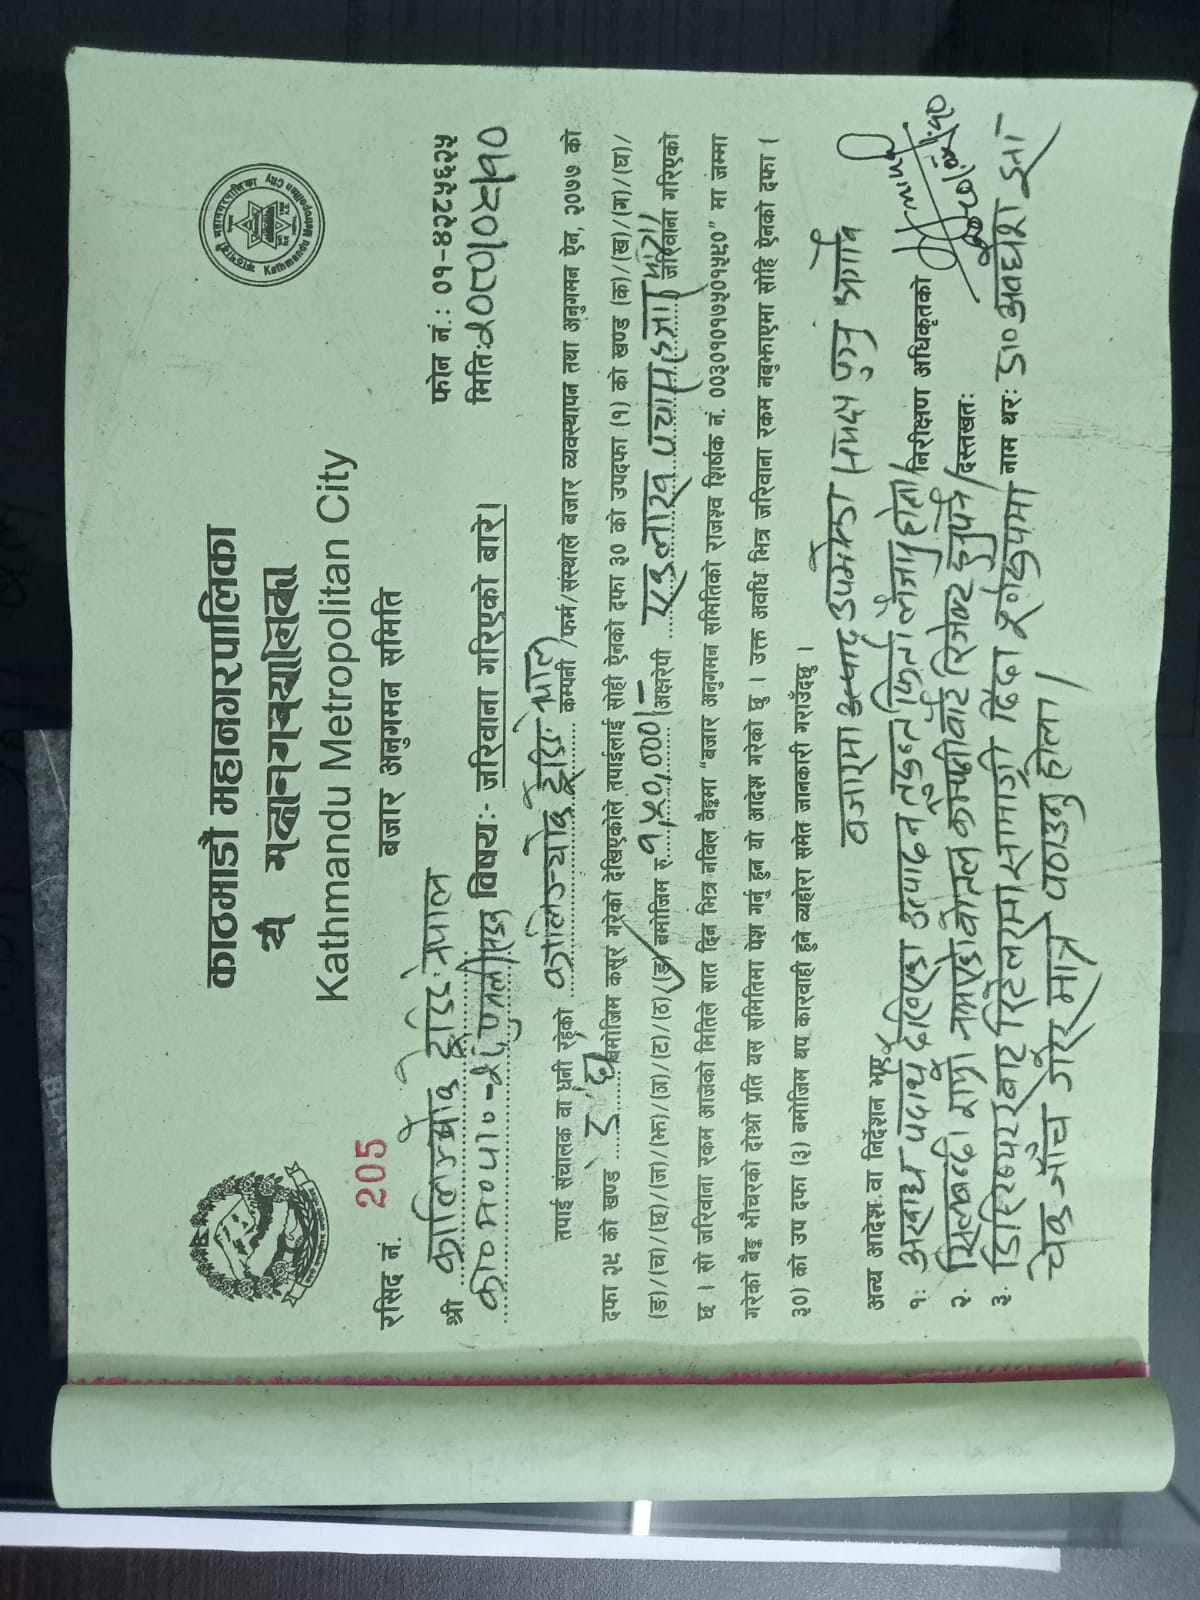 काठमाडौं महानगरपालिका
यें महानगरपालिका
Kathmandu Metropolitan City
काठमाडौं महानगरपालिका
Kathmandu Metropolitan City
रसिद नं. 205
बजार अनुगमन समिति
श्री कालिञ्चोक ट्रेडिङ नेपाल
फोन नं.: ०१-४२८५६२५
का०म०पा०-२८ पुतलीसडक विषय:- जरिवाना गरिएको बारे।
मिति: २०८०/०५/१०
तपाई संचालक वा धनी रहेको कालिञ्चोक ट्रेडिङ नेपाल कम्पनी /फर्म/संस्थाले बजार व्यवस्थापन तथा अनुगमन ऐन, २०७७ को
दफा २९ को खण्ड बमोजिम कसूर गरेको देखिएकोले तपाईलाई सोही ऐनको दफा ३० को उपदफा (१) को खण्ड (क)/(ख)/(ग)/(घ)/
(ङ)/(च)/(छ)/(ज)/(झ)/(ञ)/(ट)/(ठ)/(ड) बमोजिम रु. १,५०,०००/- अक्षरेपी एकलाख पचास हजार मात्र। जरिवाना गरिएको
छ । सो जरिवाना रकम आजको मितिले सात दिन भित्र नविल वैङ्कमा “बजार अनुगमन समितिको राजश्व शिर्षक नं. ००३०१०१७५०१५९०” मा जम्मा
गरेको बैङ्क भौचरको दोश्रो प्रति यस समितिमा पेश गर्नु हुन यो आदेश गरेको छु । उक्त अवधि भित्र जरिवाना रकम नबुझाएमा सोहि ऐनको दफा (
३०) को उप दफा (३) बमोजिम थप कारवाही हुने व्यहोरा समेत जानकारी गराउँदछु ।
बजारमा उत्पाद उपभोक्ता समक्ष पुग्नु अगावै
अन्य आदेश वा निर्देशन भए
१. अखाद्य पदार्थ देखिएका उत्पादन तुरुन्त फिर्ता लैजानु होला।
निरीक्षण अधिकृतको
२. सिलबन्दी राम्रो नभएको बोतल कम्पनीबाटै रिजेक्ट हुनुपर्ने।
दस्तखत:
२०८०/०५/१०
३. डिस्ट्रिब्युटरबाट रिटेलरमा सामाग्री दिँदा
नाम थर: डा० अवधेश झा
चेक जाँच गरेर मात्र पठाउनु होला।